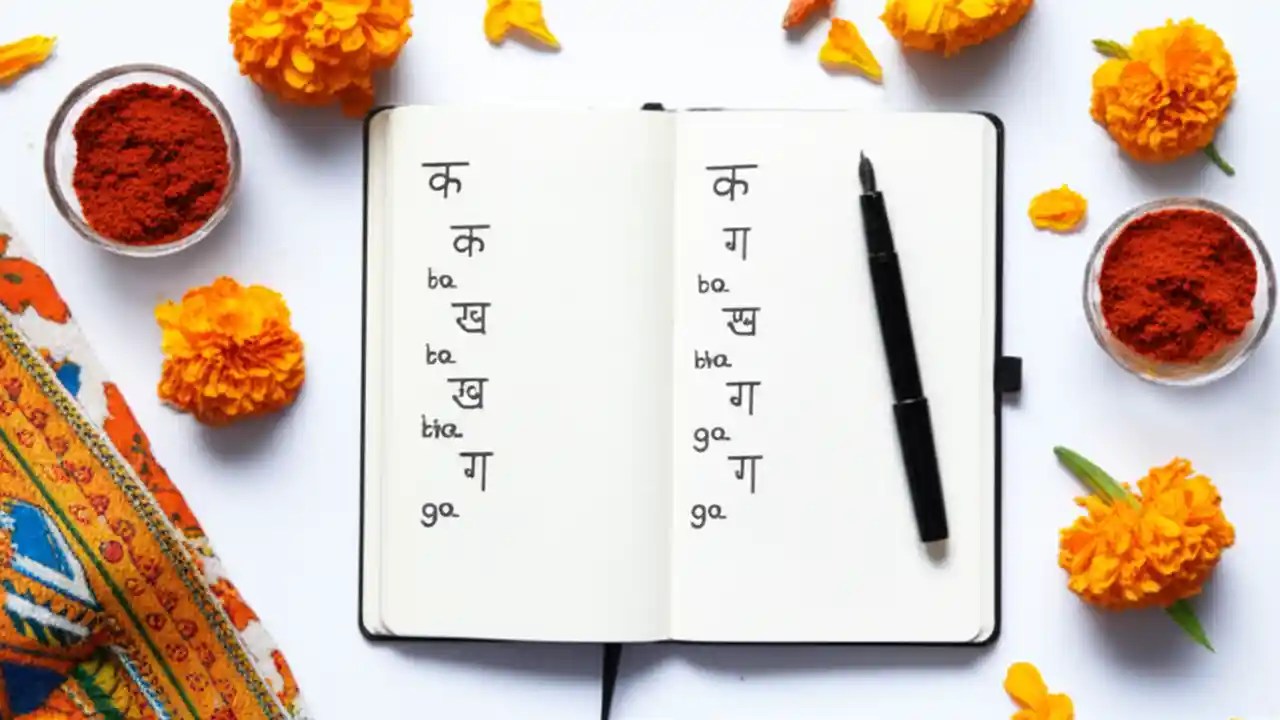 क
क
ba
ख
ba
ख
bha
ग
ga
क
ग
ba
ख
bha
ग
ga
ग
ga